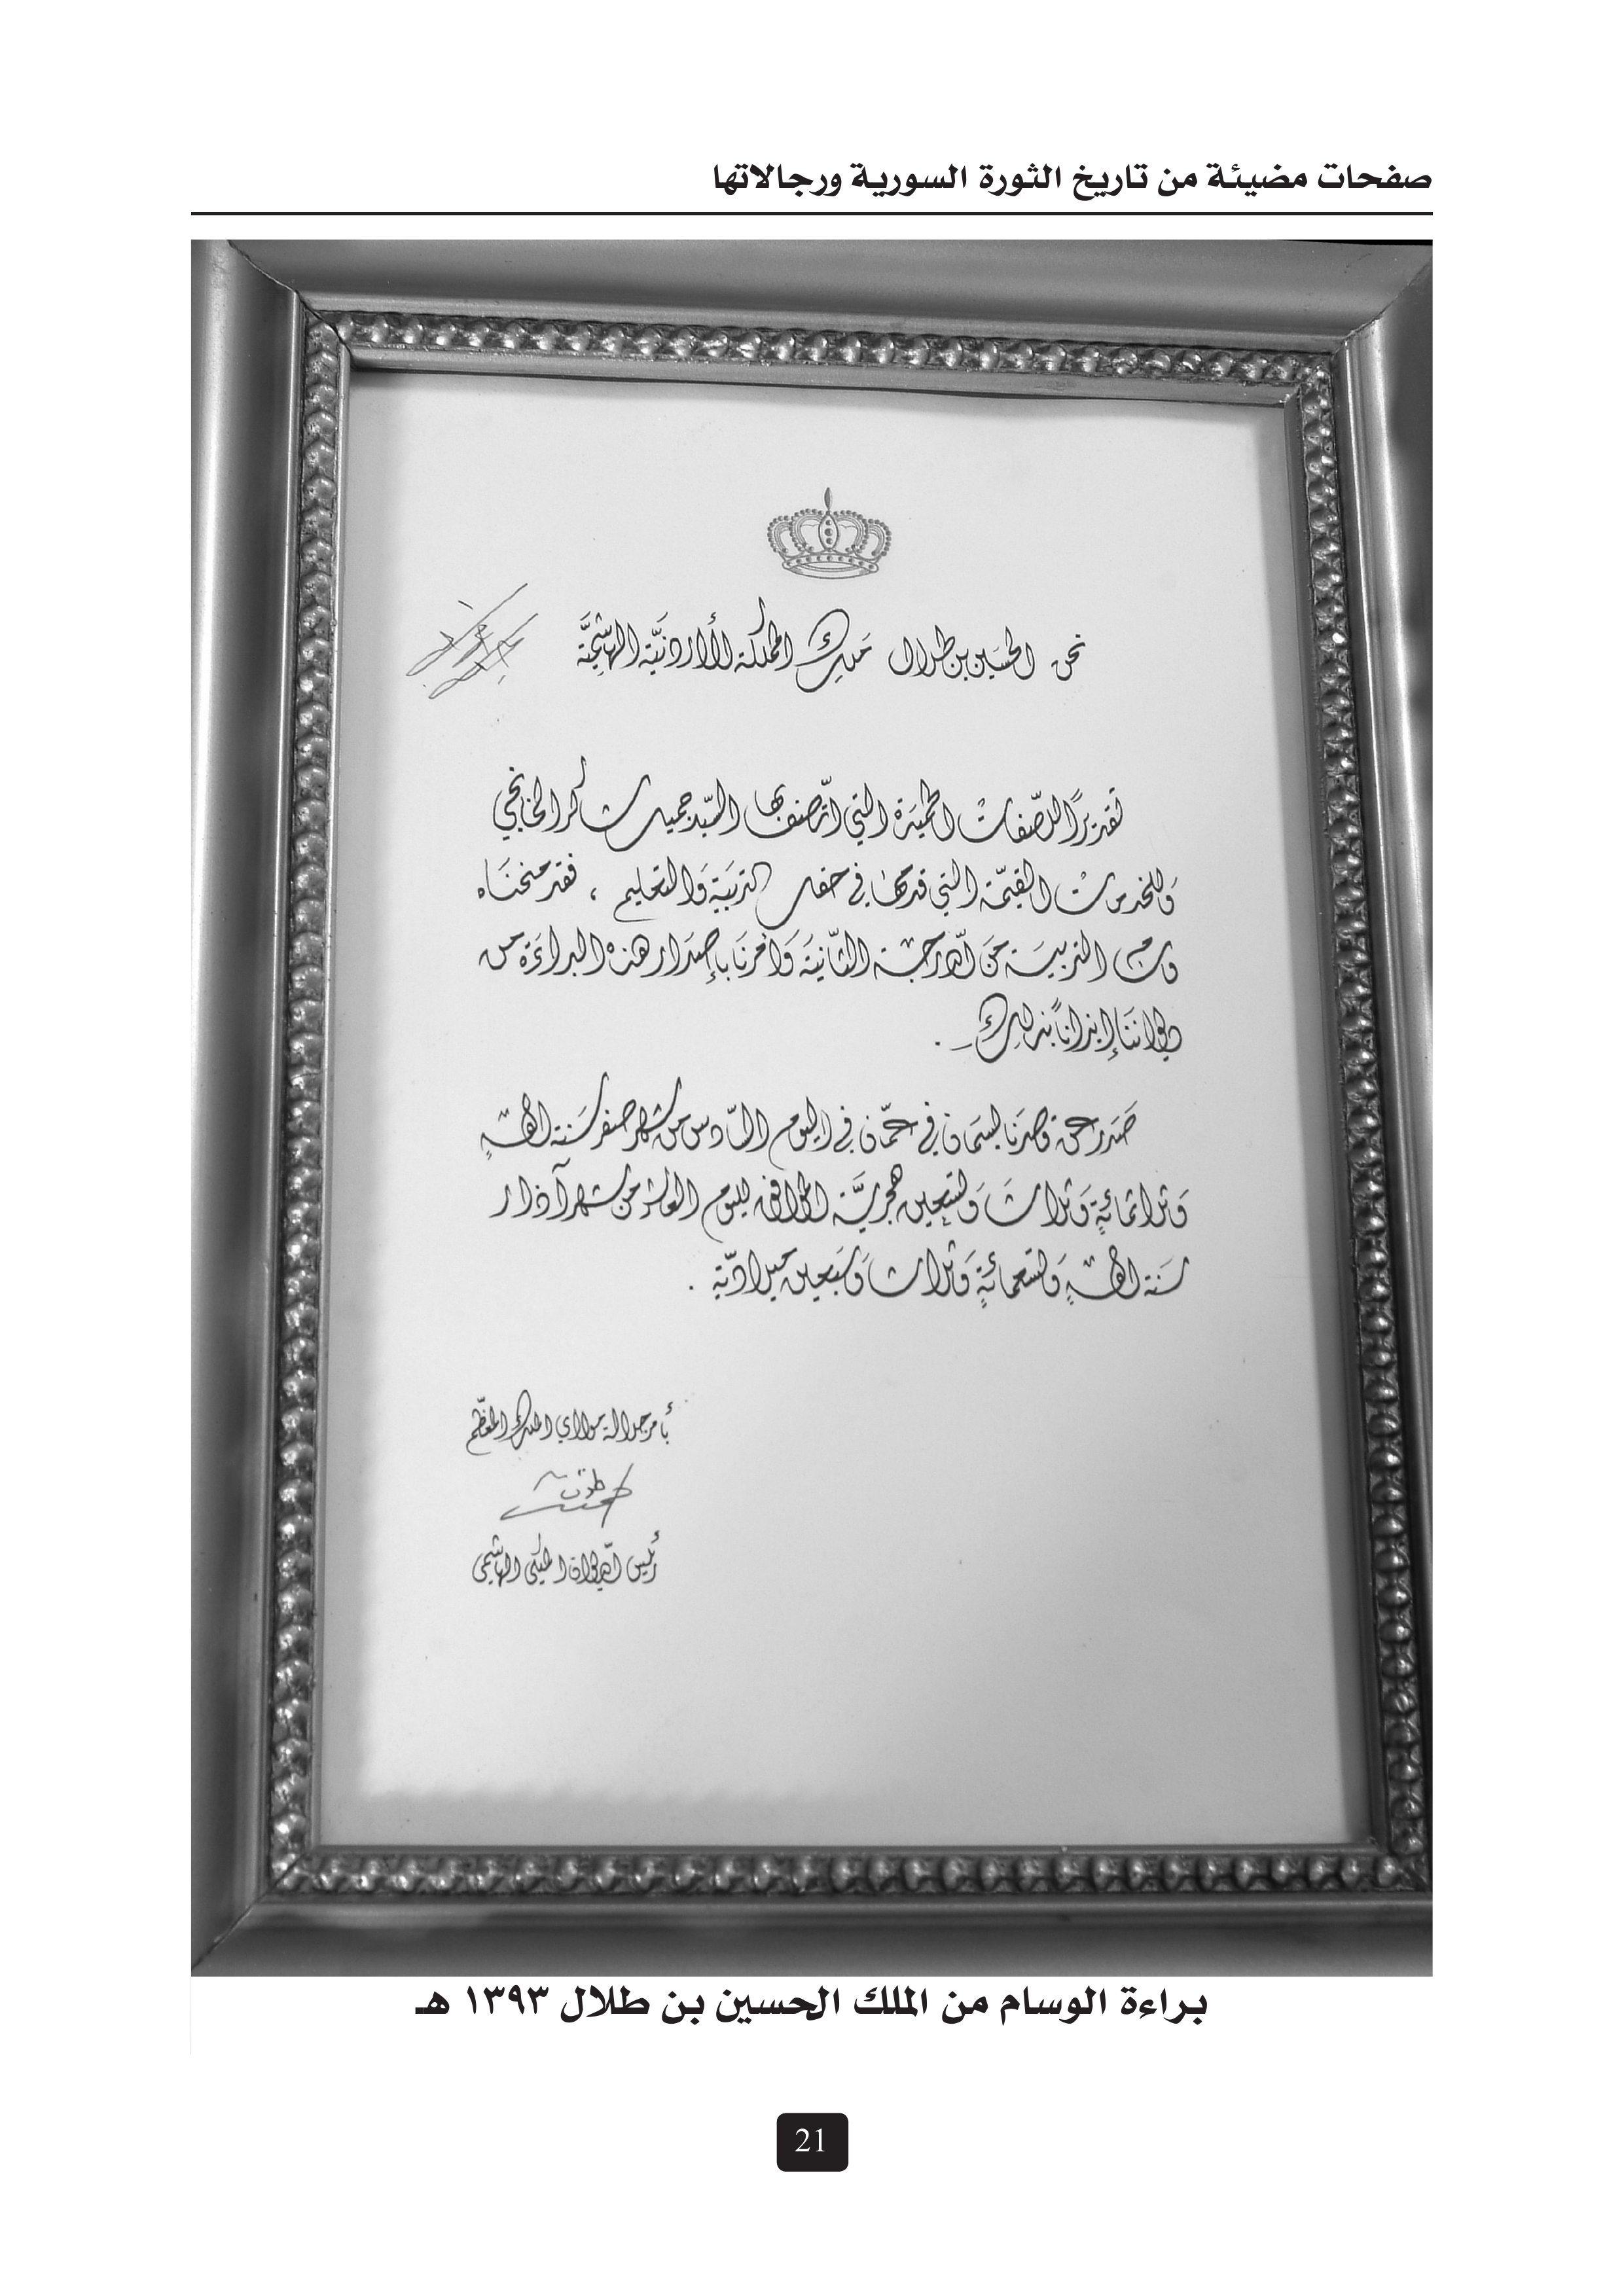 صفحات مضيئة من تاريخ الثورة السورية ورجالاتها
نحن الحسين بن طلال ملك المملكة الأردنية الهاشمية
تقديراً للصّفات الحميدة التي اتّصف بها السّيد جميل شاكر الخانجي
وللخدمات القيّمة التي قدمها في حقل التربية والتعليم ، فقد منحناه
وسام التربية من الدّرجة الثّانية وأمرنا بإصدار هذه البراءة من
ديواننا إيذاناً بذلك .
صدر عن قصرنا بسمان في عمّان في اليوم السّادس من شهر صفر سنة ألف
وثلاثمائةٍ وثلاث وتسعين هجريّة الموافق لليوم العاشر من شهر آذار
سنة ألفٍ وتسعمائةٍ وثلاث وسبعين ميلاديّة .
بأمر جلالة مولاي الملك المعظّم
رئيس الديوان الملكي الهاشمي
براءة الوسام من الملك الحسين بن طلال ١٣٩٣ هـ
21